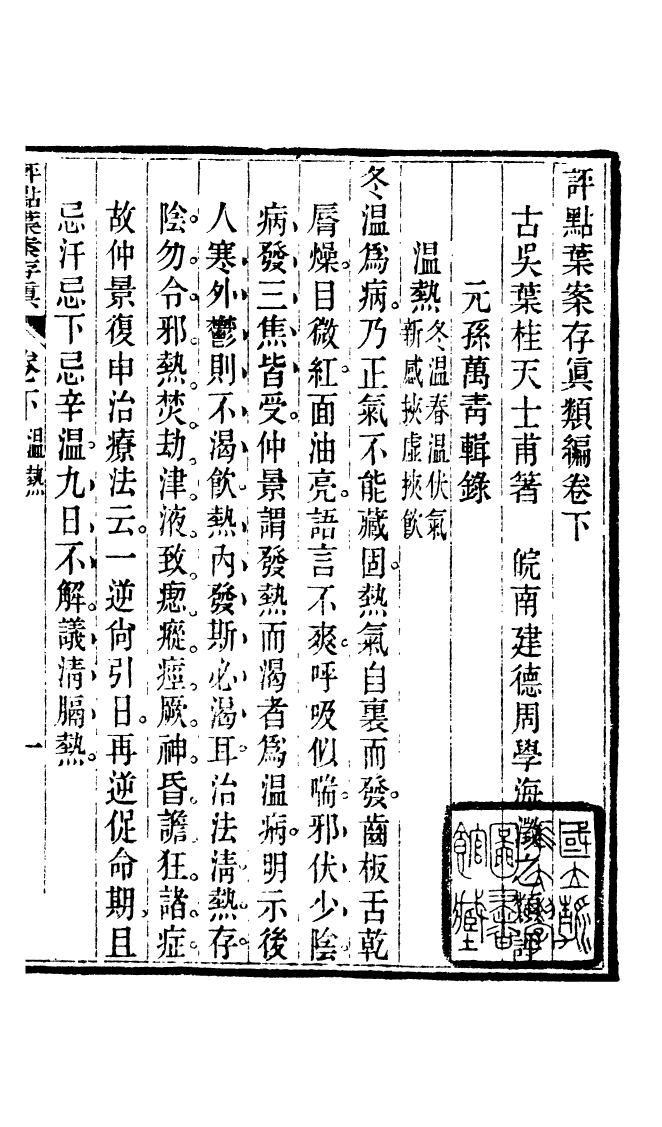 評點葉案存眞類編卷下
古吳葉桂天士甫箸　皖南建德周學海澂之評
元孫萬靑輯錄
溫熱
冬溫春溫伏氣
新感挾虛挾飲
冬溫爲病。乃正氣不能藏固。熱氣自裏而發。齒板舌乾
脣燥。目微紅。面油亮。語言不爽。呼吸似喘。邪伏少陰
病發三焦皆受。仲景謂發熱而渴者爲溫病。明示後
人寒外鬱則不渴飲熱內發斯必渴耳治法淸熱存
陰。勿令邪熱焚劫津液。致瘛瘲痙厥神昏譫狂諸症
故仲景復申治療法云。一逆尙引日。再逆促命期。且
忌汗忌下忌辛溫。九日不解。議淸膈熱。
評點葉案存眞
卷下　溫熱
一
國立
圖書
館藏